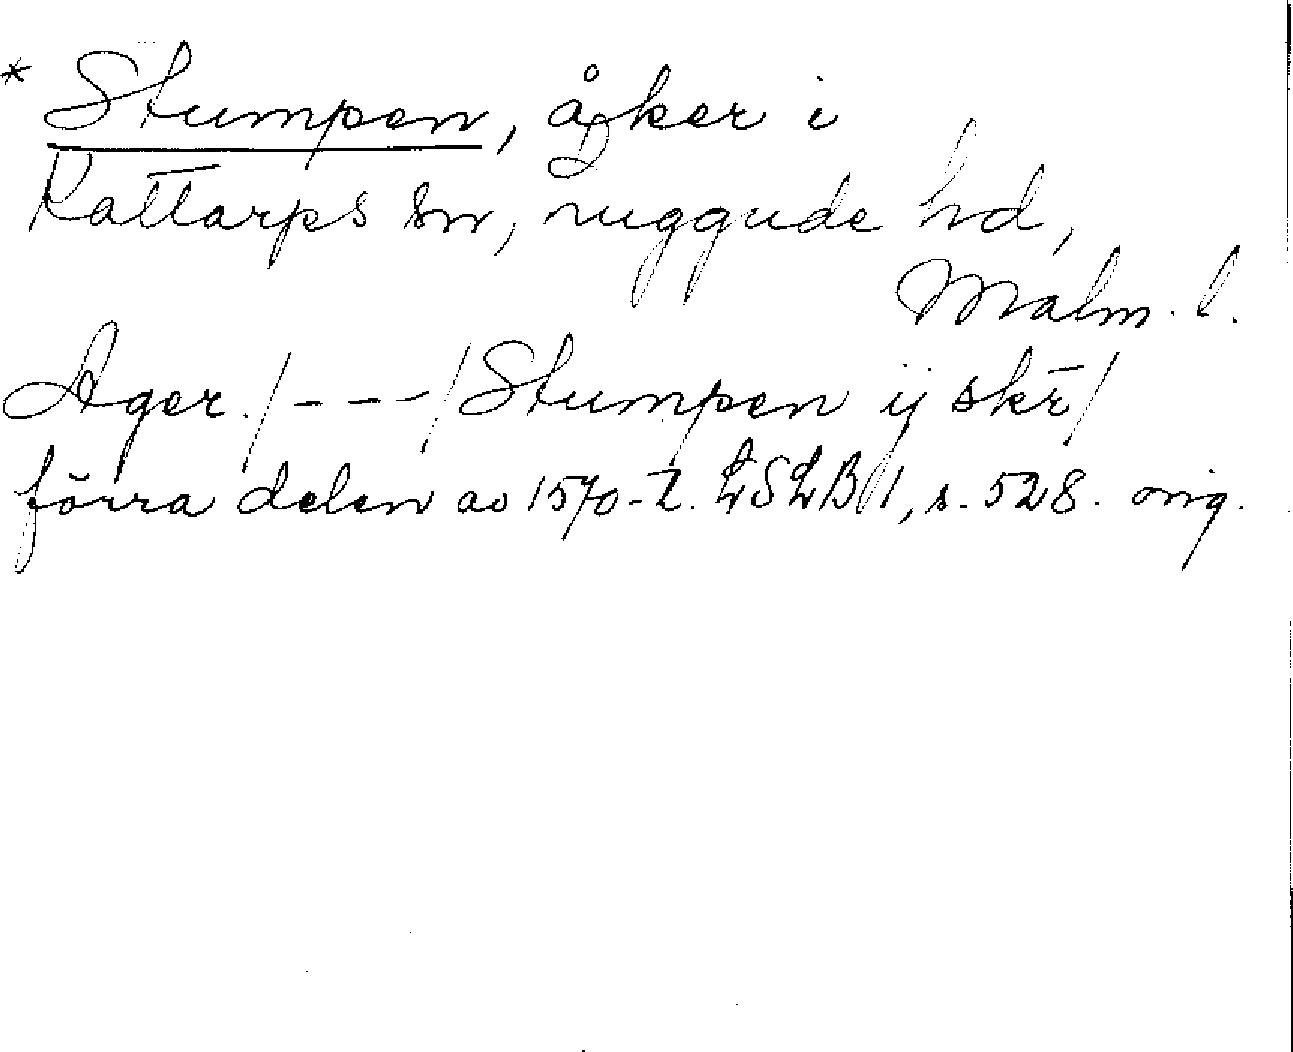 * Stumpen, åker i
Kattarps sn, Luggude hd,
Malm. l.
Ager /---/ Stumpen ij skr̄ /
förra delen av 1570-t. LSLB 1, s. 528. orig.